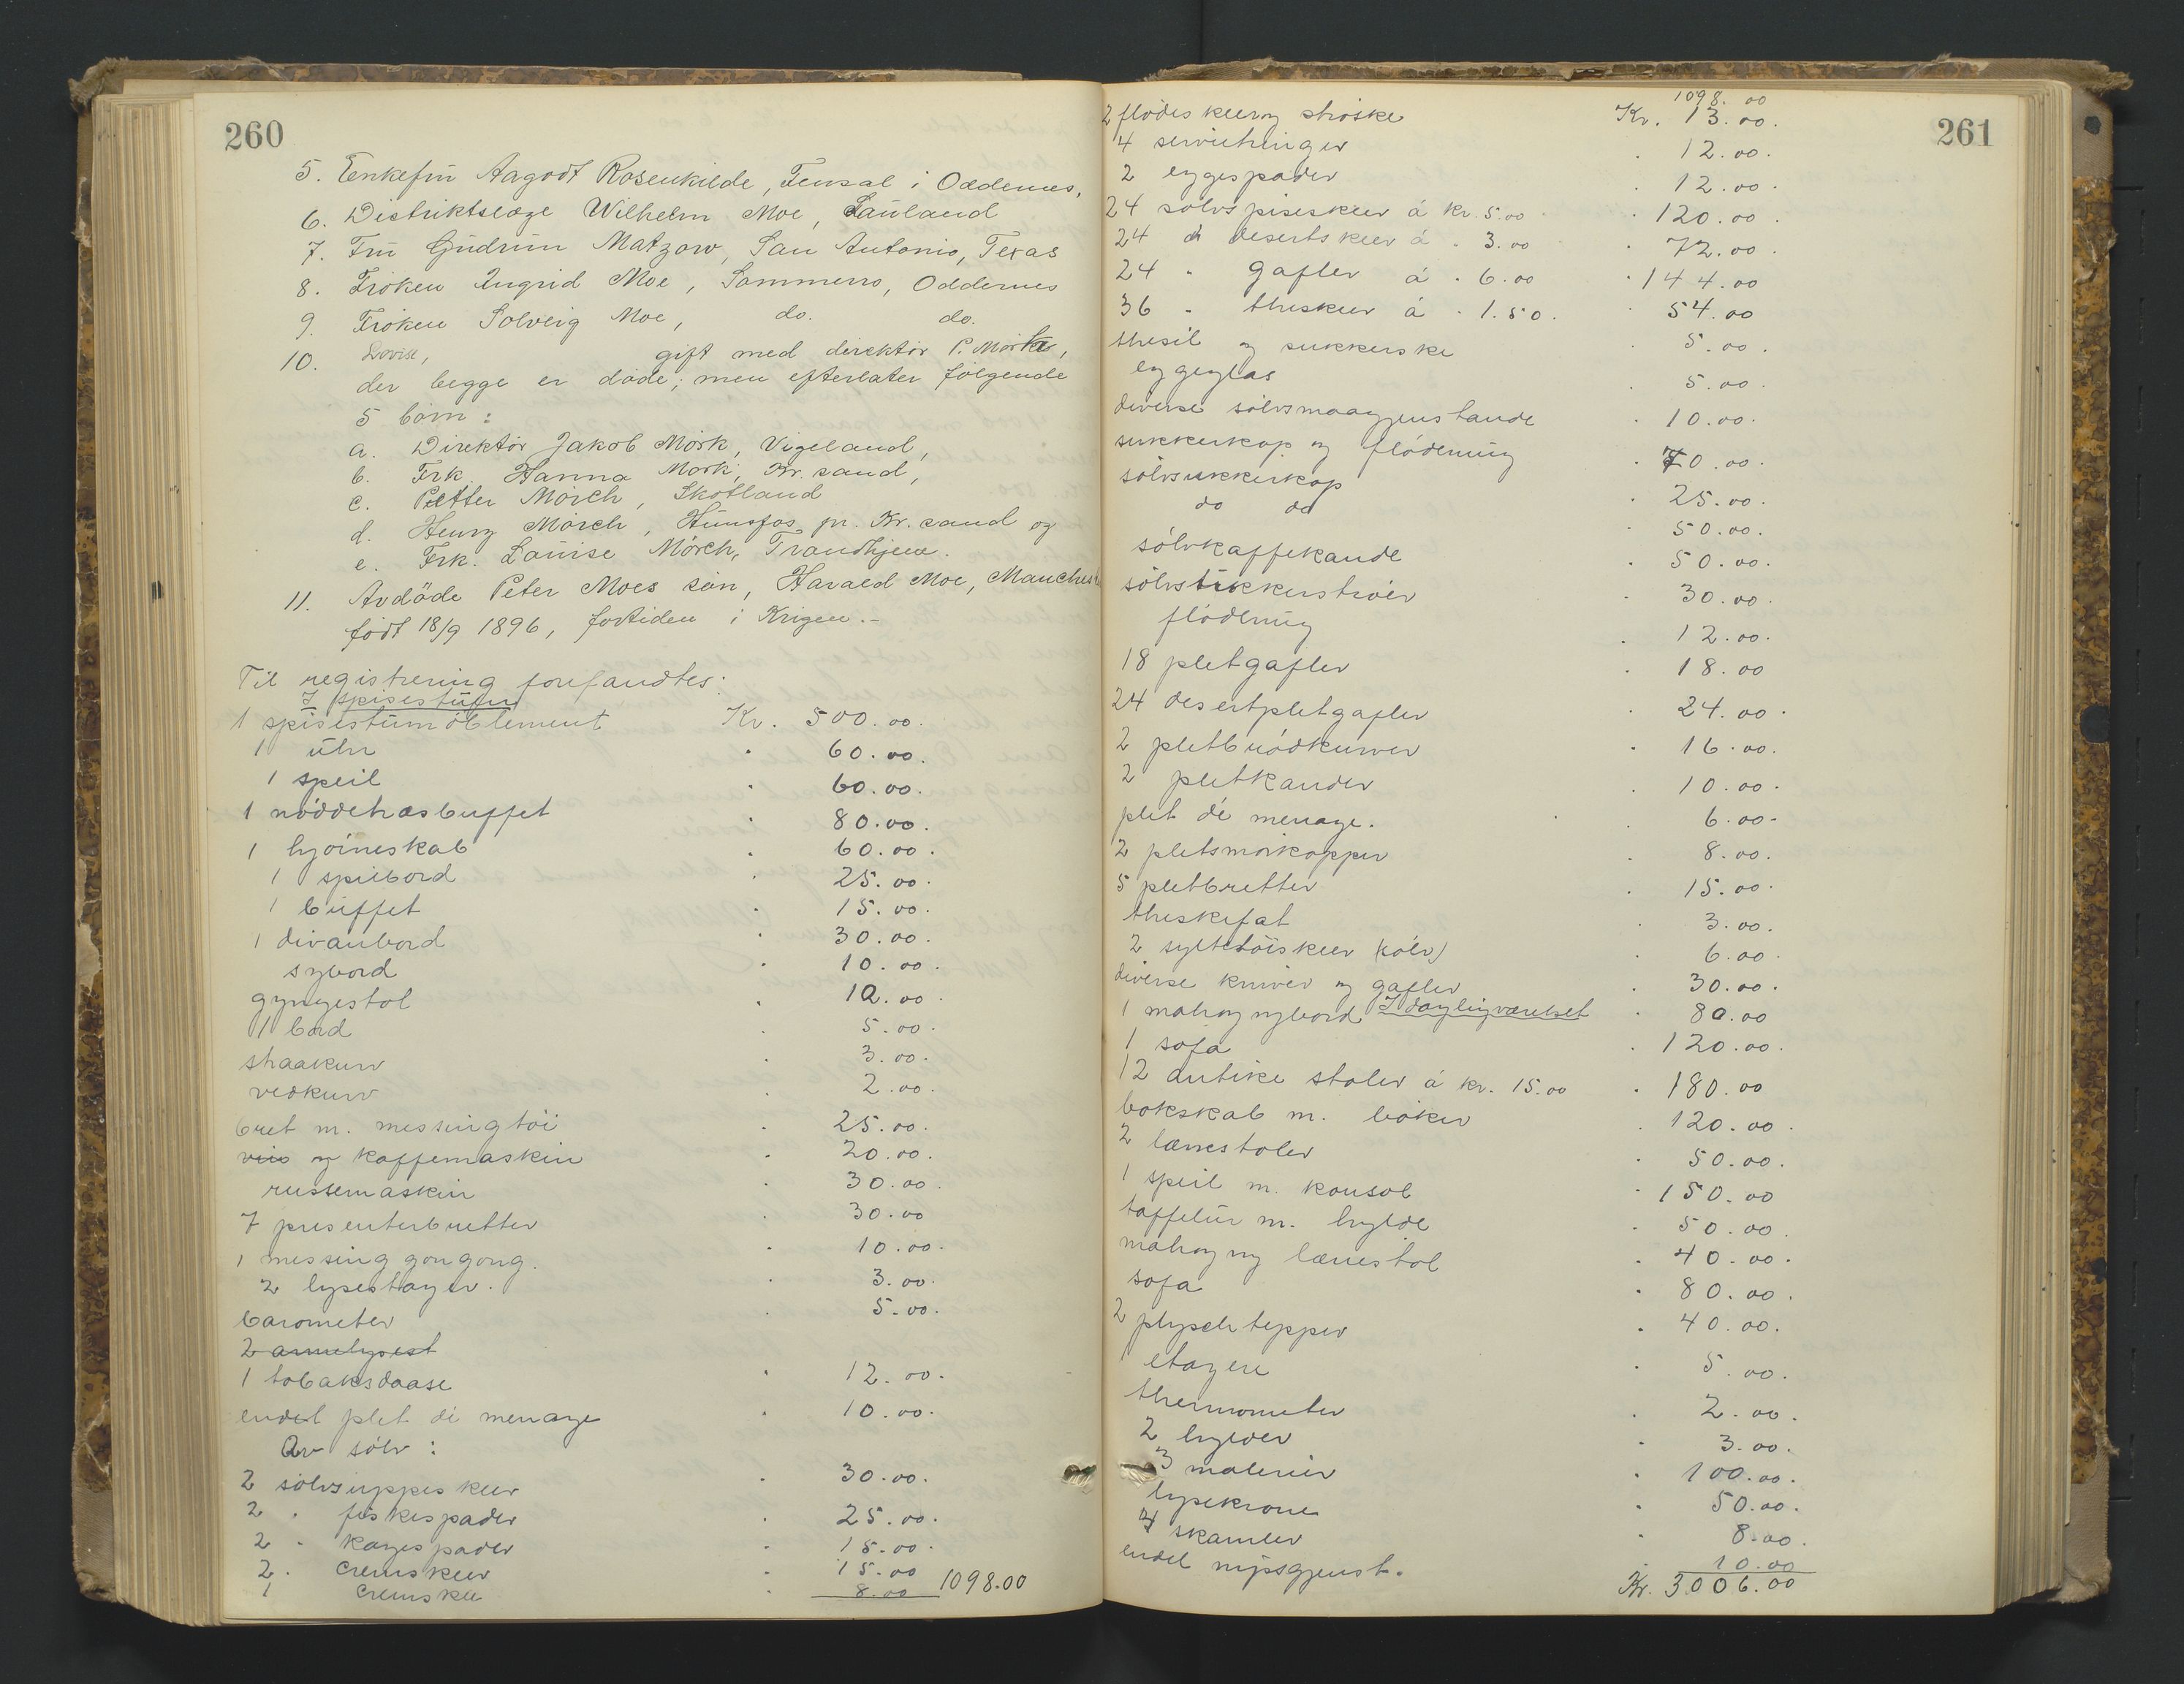 260
5. Enkefru Aagodt Rosenkilde, Fensal i Oddernes,
6. Distriktslæge Wilhelm Moe, Lauland
7. Fru Gudrun Matzow, San Antonio, Texas
8. Fröken Ingrid Moe, Sommerro, Oddernes
9. Fröken Solveig Moe, do. do.
10. Lovise, gift med direktör P. Mörk,
der begge er döde; men efterlater følgende
5 börn:
a. Direktör Jakob Mörk, Vigeland,
b. Frk. Hanna Mörk, Kr.sand,
c. Petter Mörch, Skotland
d. Henry Mörch, Hunsfos pr. Kr.sand og
e. Frk. Louise Mörch, Trondhjem.
11. Avdöde Peter Moes sön, Harald Moe, Manchest
födt 18/9 1896, fortiden i Krigen.-
Til registrering forefandtes:
I spisestuen
1 spisestumöblement Kr. 500.00.
1 uhr 60.00.
1 speil 60.00.
1 nöddetræsbuffet 80.00.
1 hjörneskab 60.00.
1 spilbord 25.00.
1 buffet 15.00.
1 divanbord 30.00.
sybord 10.00.
gyngestol 10.00
1 bord 5.00.
straakurv 3.00.
vedkurv 2.00.
bret m. messingtöi 25.00.
og kaffemaskin 20.00.
russemaskin 30.00.
7 presenterbretter 30.00
1 messing gongong. 10.00.
2 lysestager. 3.00.
barometer 5.00.
2 armelysest
1 tobaksdaase 12.00.
endel plet de menage 10.00.
Av sölv:
2 sölvsuppeskeer 30.00.
2 " fiskespader 25.00.
2 " kagespader 15.00.
2 " cremskeer 15.00
1 cremskee 8.00 1098.00
261
1098.00
2 flödeskeer og ströske Kr. 13.00.
4 servietringer 12.00.
2 eggespader 12.00.
24 sölvspiseskeer á kr. 5.00 120.00.
24 " desertskeer á " 3.00 72.00.
24 " gafler á " 6.00 144.00
36 " theskeer á " 1.50. 54.00
thesil og sukkerske 5.00.
eggeglas 5.00.
diverse sölvsmaagjenstande 10.00.
sukkerkop og flödemug 70.00.
sölvsukkerkop 25.00.
do do 50.00.
sölvkaffekande 50.00.
sölvsukkerströer 30.00.
flödemug 12.00.
18 pletgafler 18.00
24 desertpletgafler 24.00.
2 pletbrödkurver 16.00.
2 pletkander 10.00.
plet de menage. 6.00.
2 pletsmörkopper 8.00.
5 pletbretter 15.00.
theskefat 3.00.
2 syltetöiskeer (sölv) 6.00.
diverse kniver og gafler 30.00.
I dagligværelset
1 mahognybord 80.00
1 sofa 120.00.
12 antike stoler á kr. 15.00 180.00
bokskab m. böker 120.00.
2 lænestoler 50.00.
1 speil m. konsol 150.00
taffelur m. hylde 50.00.
mahogny lænestol 40.00.
sofa 80.00.
2 plyschtepper 40.00.
etagere 5.00.
thermometer 2.00.
2 hylder 3.00.
3 malerier 100.00.
lysekrone 50.00.
4 skamler 8.00.
endel nipsgjenst. 10.00
Kr. 3006.00